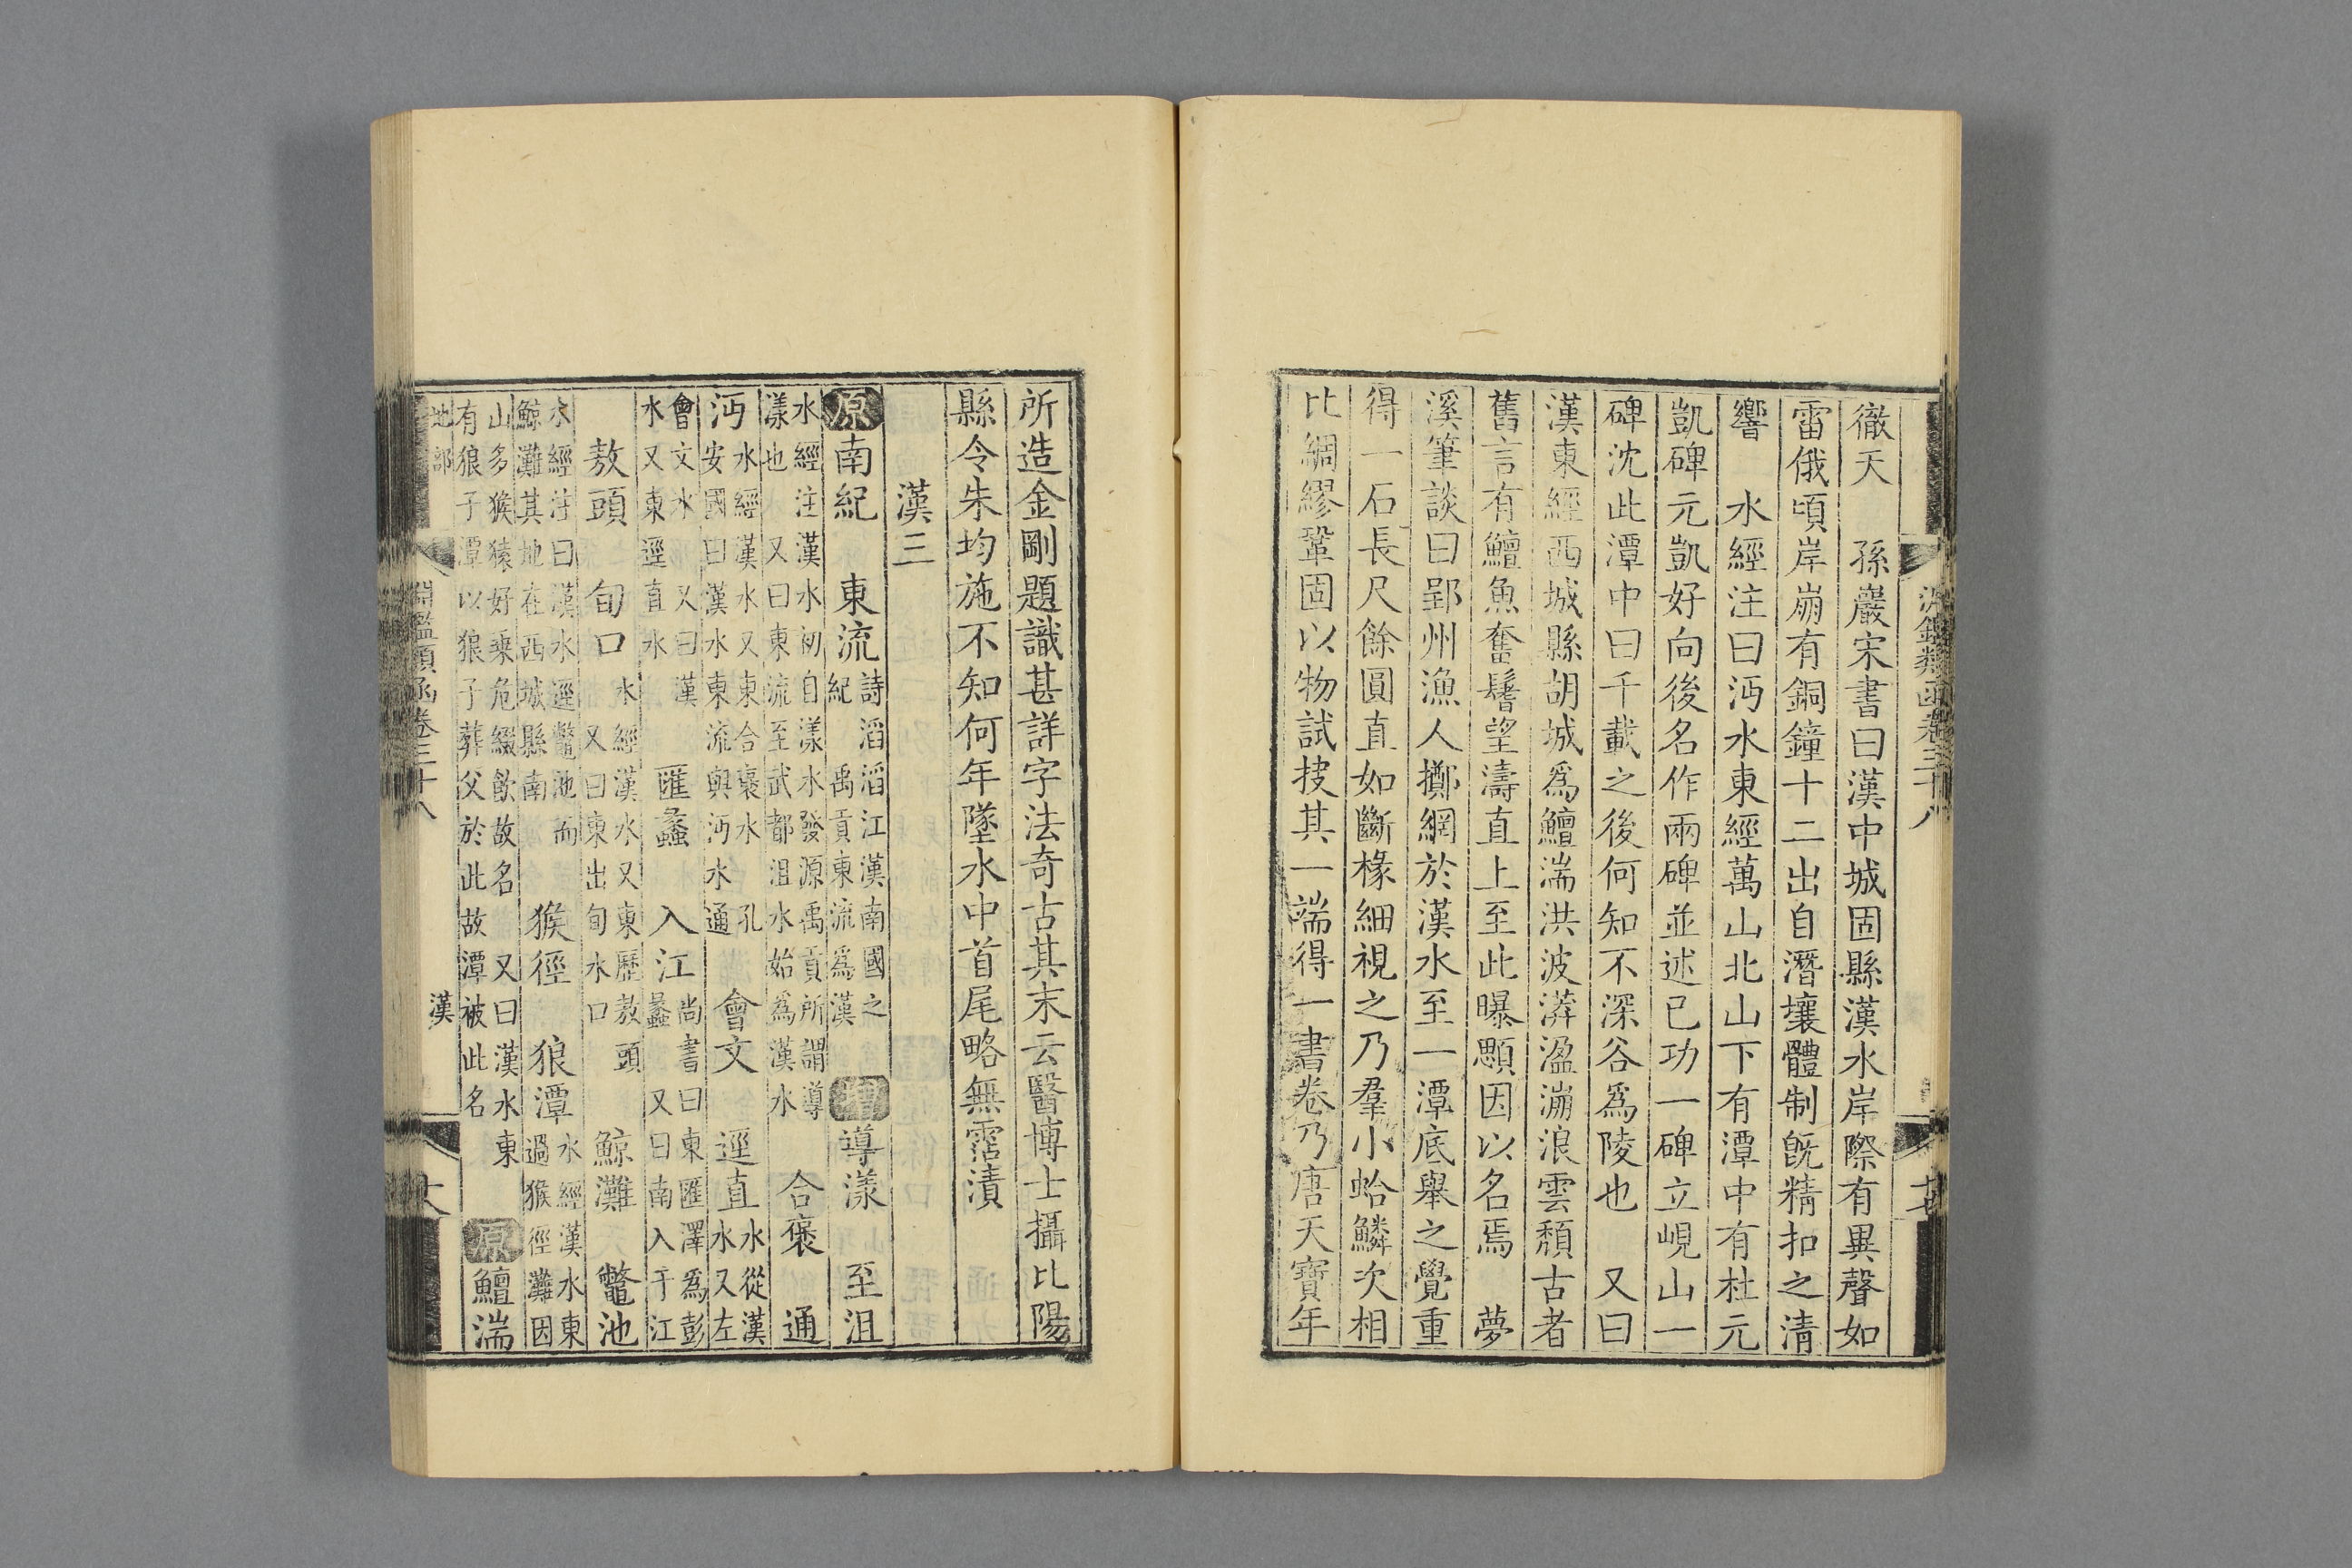 淵鑑類函卷三十八
徹天　孫巖宋書曰漢中城固縣漢水岸際有異聲如
雷俄頃岸崩有銅鐘十二出自潛壤體制旣精扣之淸
響　水經注曰沔水東經萬山北山下有潭中有杜元
凱碑元凱好向後名作兩碑並述已功一碑立峴山一
碑沈此潭中曰千載之後何知不深谷爲陵也　又曰
漢東經西城縣胡城爲鱣湍洪波漭盪漰浪雲頽古者
舊言有鱣魚奮鬐望濤直上至此曝顋因以名焉　夢
溪筆談曰郢州漁人擲網於漢水至一潭底舉之覺重
得一石長尺餘圓直如斷椽細視之乃羣小蛤鱗次相
比綢繆鞏固以物試抜其一端得一書卷乃唐天寶年
所造金剛題識甚詳字法奇古其末云醫博士攝比陽
縣令朱均施不知何年墜水中首尾略無霑漬
漢三
原 南紀　東流　詩滔滔江漢南國之紀　禹貢東流爲漢　增 導漾　至沮
水經注漢水初自漾水發源禹貢所謂導漾也　又曰東流至武都沮水始爲漢水　合褒　通
沔　水經漢水又東合褒水　孔安國曰漢水東流與沔水通　會文　逕直　水從漢水又左
會文水　又曰漢水又東逕直水　匯蠡　入江　尚書曰東匯澤爲彭蠡　又曰南入于江
敖頭　旬口　水經漢水又東歷敖頭　又曰東出旬水口　鯨灘　鼈池
水經注曰漢水逕鼈池而鯨灘其地在西城縣南　猴徑　狼潭　水經漢水東過猴徑灘因
山多猴猿好乘危綴飮故名　又曰漢水東有狼子潭以狼子葬父於此故潭被此名　原 鱣湍
地部　淵鑑類函卷三十八　漢